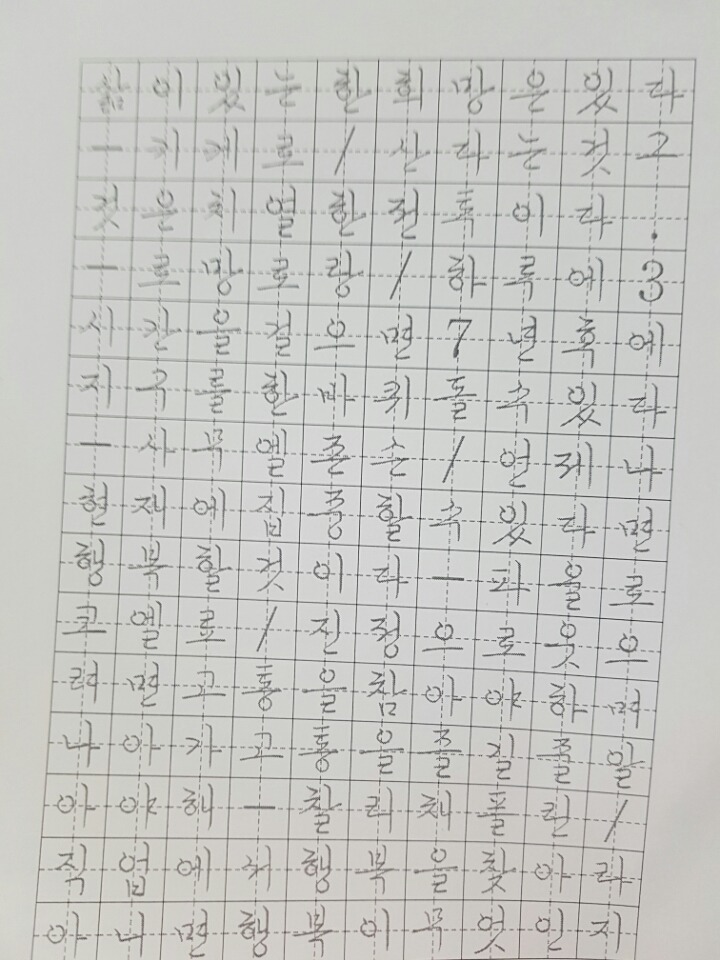 삶이있는한희망은있다
-키케로/산다는것그
것은치열한전투이다.
-로망로랑/하루에3
시간을걸으면7년후에
지구를한바퀴돌수있다
-사무엘존슨/언제나
현재에집중할수있다면
행복할것이다-파울로
코엘로/진정으로웃으
려면고통을참아야하며
나아가고통을즐길줄알
아야해-찰리채플린/
직업에서행복을찾아라
아니면행복이무엇인지